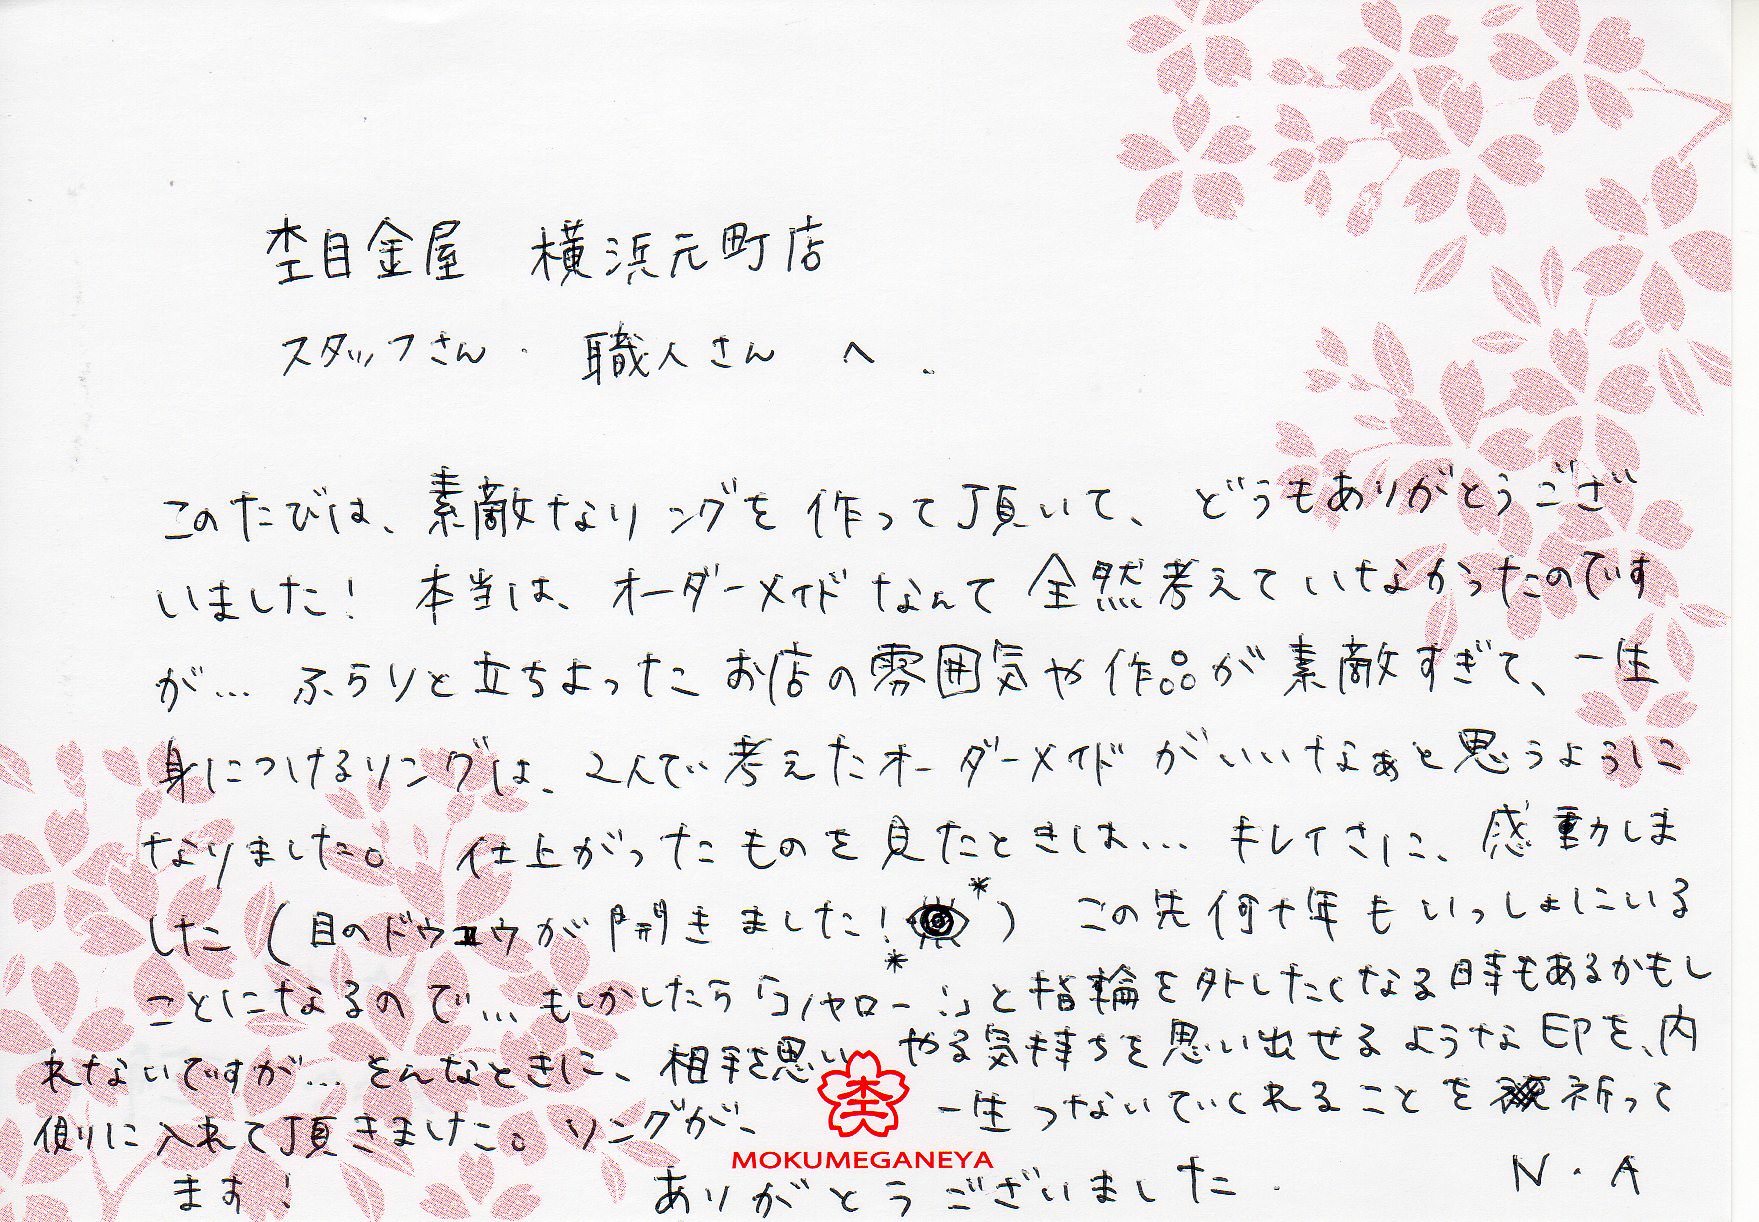 杢目金屋 横浜元町店
スタッフさん・職人さん へ.
このたびは、素敵なリングを作って頂いて、どうもありがとうござ
いました! 本当は、オーダーメイドなんて全然考えていなかったのです
が… ふらりと立ちよったお店の雰囲気や作品が素敵すぎて、一生
身につけるリングは、2人で考えたオーダーメイドがいいなぁと思うように
なりました。 仕上がったものを見たときは… キレイさに、感動しま
した(目のドウコウが開きました!) この先何十年もいっしょにいる
ことになるので… もしかしたら「コノヤロー!」と指輪を外したくなる時もあるかもし
れないですが… そんなときに、相手を思いやる気持ちを思い出せるような印を、内
側に入れて頂きました。リングが、一生つないでいてくれることを祈って
ます! ありがとうございました. N.A
杢
MOKUMEGANEYA